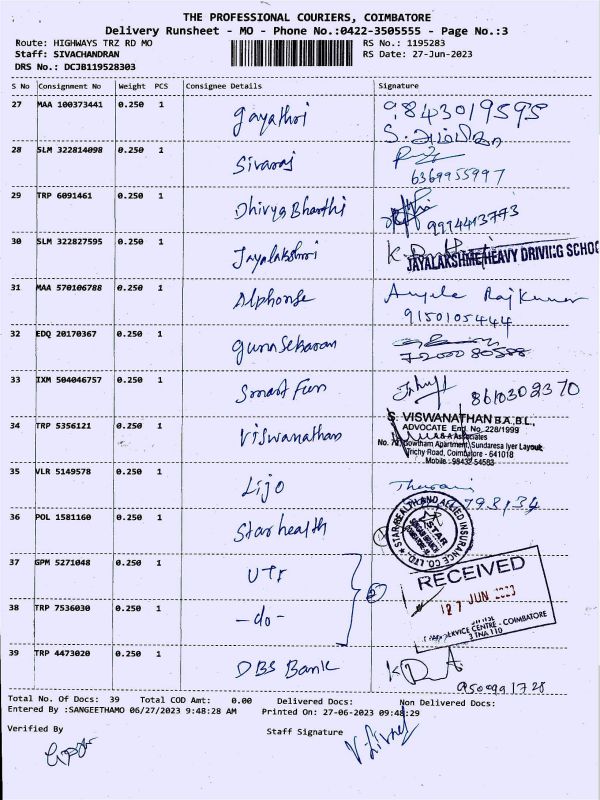 THE PROFESSIONAL COURIERS, COIMBATORE
Delivery Runsheet - MO - Phone No.:0422-3505555 - Page No.:3
Route: HIGHWAYS TRZ RD MO
RS No.: 1195283
Staff: SIVACHANDRAN
RS Date: 27-Jun-2023
DRS No.: DCJB119528303
S No Consignment No Weight PCS Consignee Details Signature
27 MAA 100373441 0.250 1 gayathri 9843019595
S. அம்பிகா
28 SLM 322814098 0.250 1 Sivaraj
6369955997
29 TRP 6091461 0.250 1 Dhivya Bharthi
9974413773
30 SLM 322827595 0.250 1 Jayalakshmi
JAYALAKSHMI HEAVY DRIVING SCHOO
31 MAA 570106788 0.250 1 Alphonse Angela Rajkumar
9150105444
32 EDQ 20170367 0.250 1 guna Sekaran
7200080588
33 IXM 504046757 0.250 1 Smart Fun 8610302370
34 TRP 5356121 0.250 1 Viswanathan
S. VISWANATHAN B.A.,B.L.,
ADVOCATE Enrl. No. 228/1999
A & A Associates
Gowtham Apartment, Sundaresa Iyer Layout,
Trichy Road, Coimbatore - 641018
Mobile : 98432 54583
35 VLR 5149578 0.250 1 Lijo
798134
36 POL 1581160 0.250 1 Star health
STAR HEALTH AND ALLIED INSURANCE CO. LTD.
STAR
37 GPM 5271048 0.250 1 UTI
RECEIVED
27 JUN 2023
38 TRP 7536030 0.250 1 -do-
SERVICE CENTRE - COIMBATORE
39 TRP 4473020 0.250 1 DBS Bank
Total No. Of Docs: 39 Total COD Amt: 0.00 Delivered Docs: Non Delivered Docs:
Entered By :SANGEETHAMO 06/27/2023 9:48:28 AM Printed On: 27-06-2023 09:48:29
Verified By Staff Signature